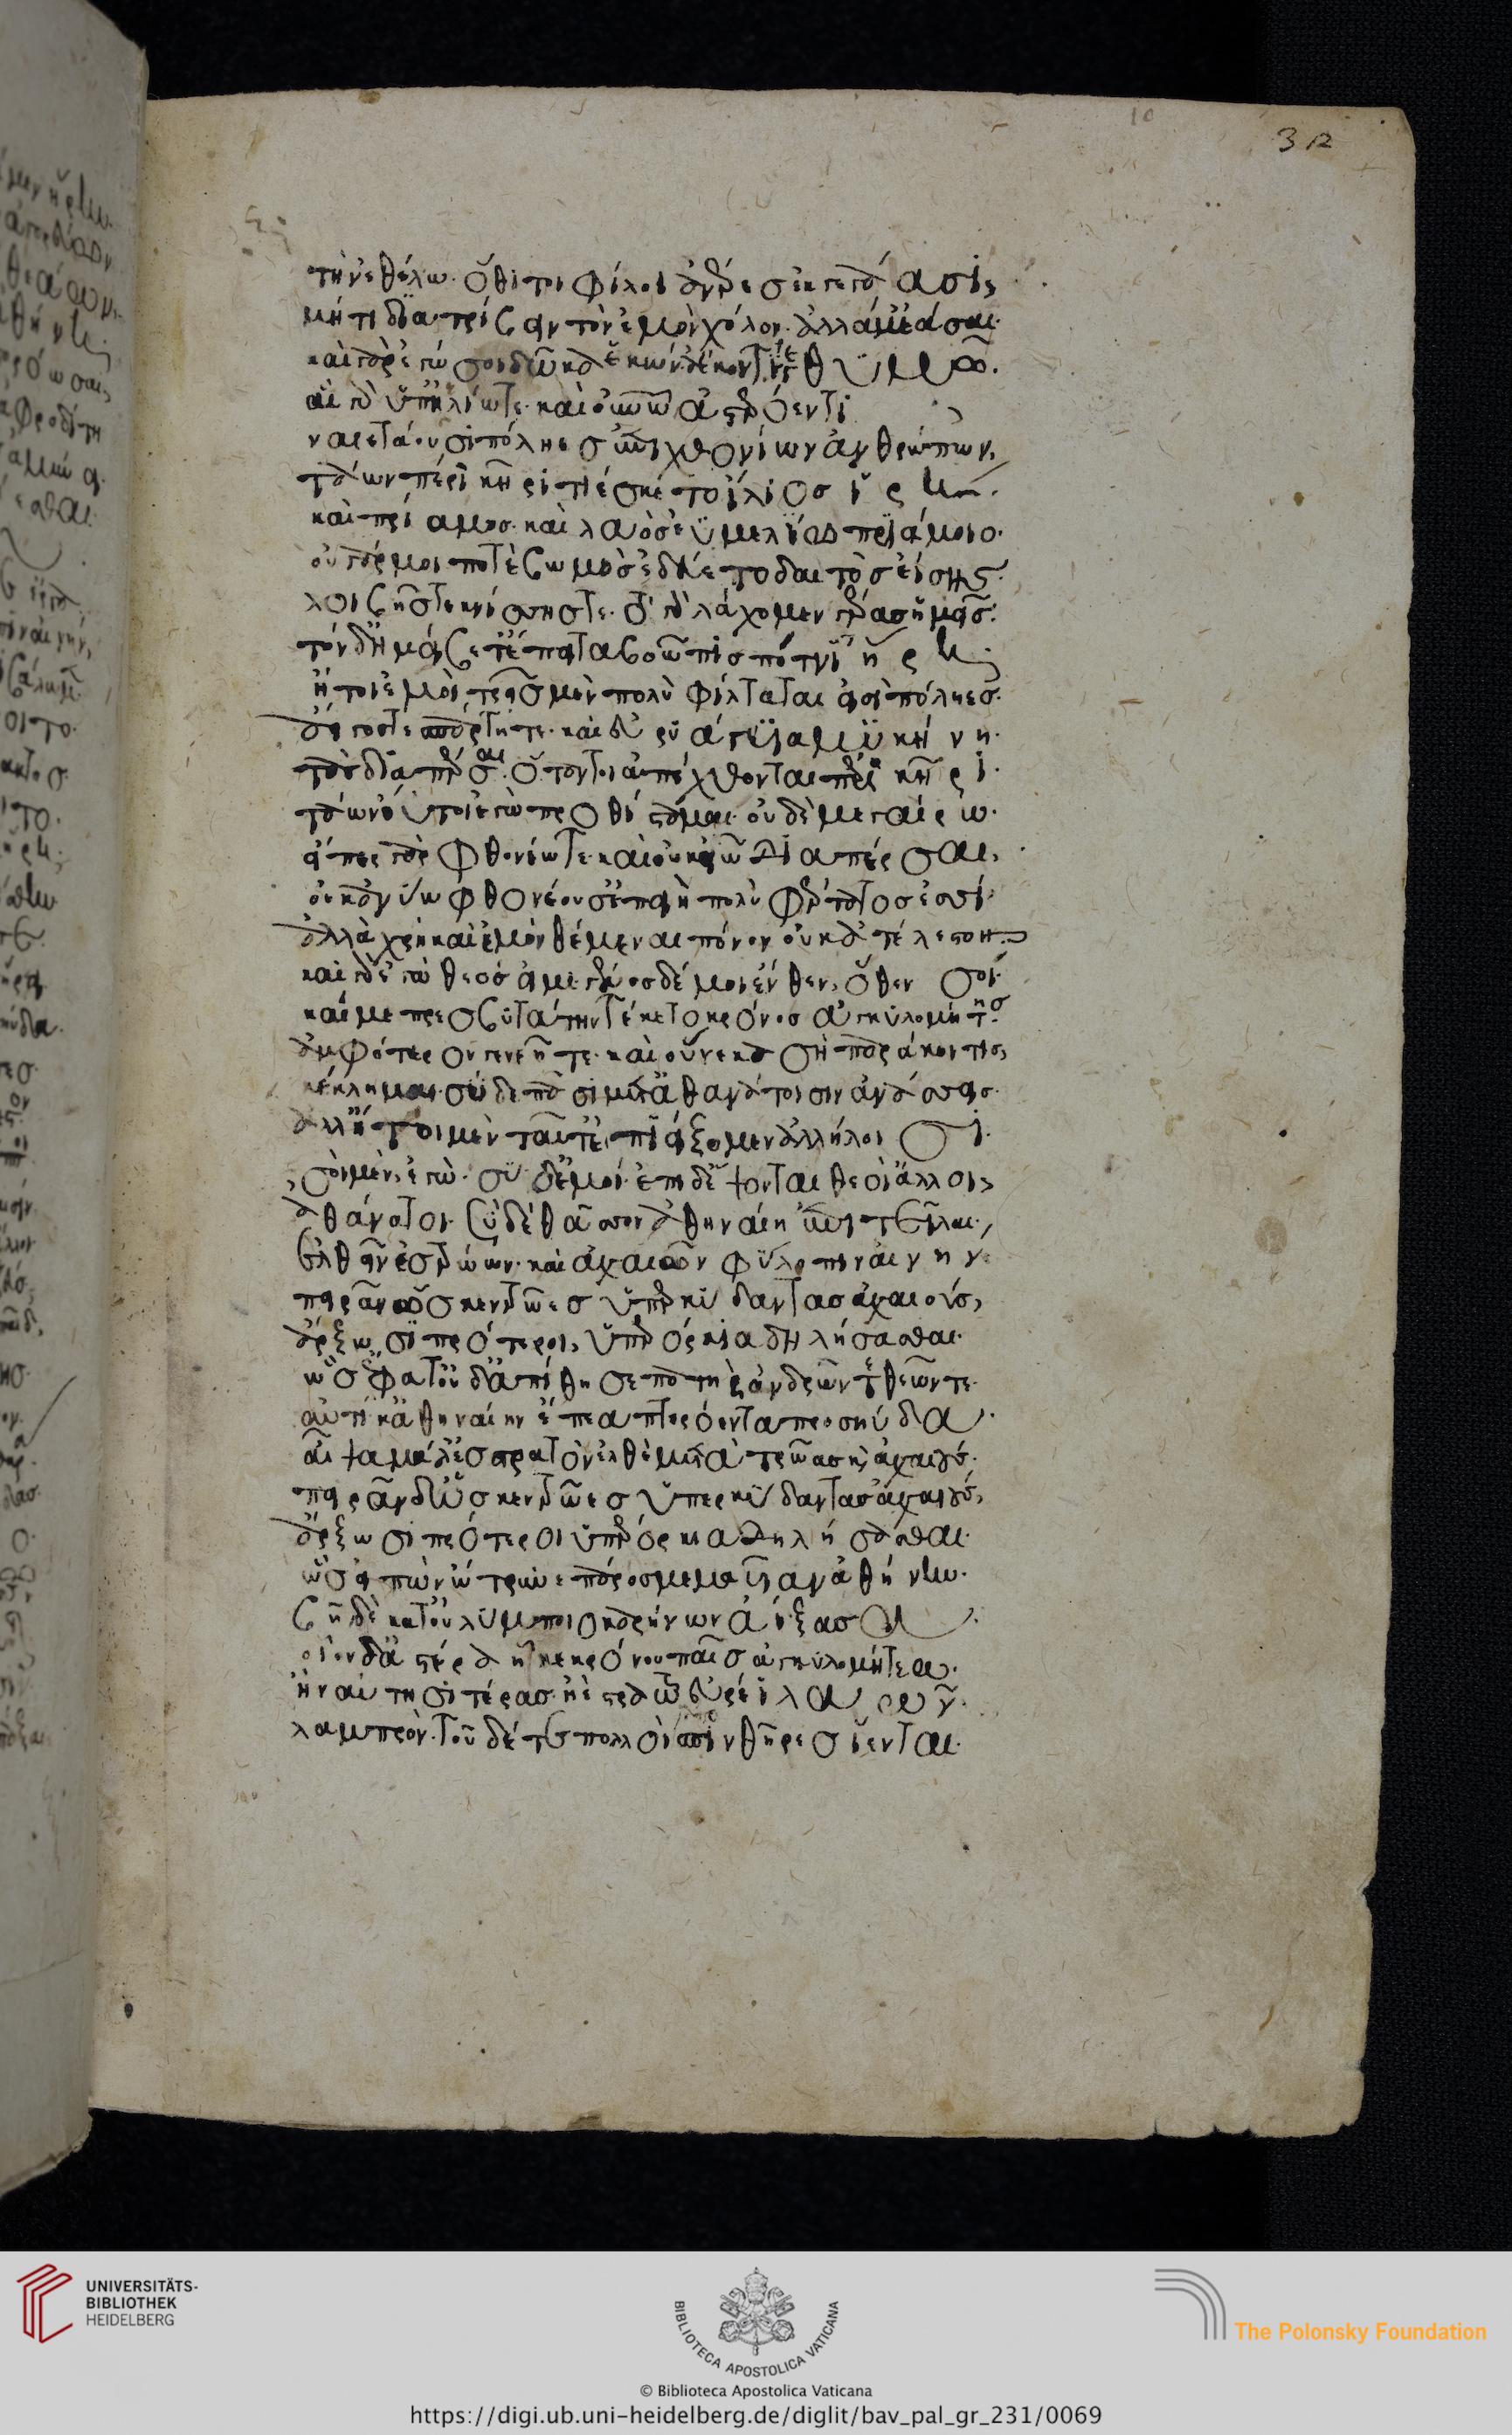 τὴν ἐθέλω. ὅθι τοι φίλοι ἀνέρες ἐγγεγάασι,
μήτι διατρίβειν τὸν ἐμὸν χόλον. ἀλλά μ' ἐᾶσαι.
καὶ γὰρ ἐγώ σοι δῶκα ἑκὼν ἀέκοντί γε θυμῶ.
αἱ γὰρ ὑπ' ἠελίω τε. καὶ οὐρανῶ ἀστερόεντι
ναιετάουσι πόληες ἐπιχθονίων ἀνθρώπων,
τάων περὶ κῆρι τιέσκετο ἴλιος ἱρή.
καὶ πρίαμος. καὶ λαὸς ἐϋμελίω πριάμοιο.
οὐ γάρ μοι ποτὲ βωμὸς ἐδεύετο δαιτὸς ἐίσης.
λοιβῆς τε κνίσσης τε. τὸ γὰρ λάχομεν γέρας ἡμεῖς.
τὸν δ' ἠμείβετ' ἔπειτα βοῶπις πότνια ἥρη.
ἤτοι ἐμοὶ τρεῖς μὲν πολὺ φίλταται εἰσὶ πόληες.
ἄργός τε σπάρτη τε. καὶ εὐρυάγυια μυκήνη.
τὰς διαπέρσαι. ὅτ' ἄν τοι ἀπέχθονται περὶ κῆρι.
τάων οὔτοι ἐγὼ πρόσθ' ἵσταμαι. οὐδὲ μεγαίρω.
εἴπερ γὰρ φθονέω τε. καὶ οὐκ εἰῶ διαπέρσαι,
οὐκ ἀνύω φθονέουσ' ἐπειὴ πολὺ φέρτατος ἐσσί.
ἀλλὰ χρὴ καὶ ἐμὸν θέμεναι πόνον οὐκ ἀτέλεστον.
καὶ γὰρ ἐγὼ θεός εἰμι. γένος δέ μοι ἔνθεν, ὅθεν σοί.
καί με πρεσβυτάτην τέκετο κρόνος ἀγκυλομήτης.
ἀμφότερον γενεῆ τε. καὶ οὕνεκα σὴ παράκοιτις,
κέκλημαι. σὺ δὲ πᾶσι μετ' ἀθανάτοισιν ἀνάσσεις.
ἀλλ' ἤτοι μὲν ταῦτ' ἐπιείξομεν ἀλλήλοισι.
σοὶ μὲν, ἐγώ. σὺ δ' ἐμοί. ἐπὶ δ' ἕψονται θεοὶ ἄλλοι,
ἀθάνατοι. σὺ δὲ θᾶσσον ἀθηναίη ἐπιτεῖλαι,
ἐλθεῖν ἐς τρώων. καὶ ἀχαιῶν φύλοπιν αἰνήν.
πειρᾶν ὥς κεν τρῶες ὑπερκύδαντας ἀχαιούς,
ἄρξωσι πρότεροι, ὑπὲρ ὅρκια δηλήσασθαι.
ὣς ἔφατ' οὐδ' ἀπίθησε πατὴρ ἀνδρῶν τε θεῶν τε.
αὐτίκ' ἀθηναίην ἔπεα πτερόεντα προσηύδα.
αἶψα μάλ' ἐς στρατὸν ἐλθὲ μετὰ τρῶας καὶ ἀχαιούς.
πειρᾶν δ' ὥς κεν τρῶες ὑπερκύδαντας ἀχαιούς,
ἄρξωσι πρότεροι ὑπὲρ ὅρκια δηλήσασθαι.
ὣς εἰπὼν ὤτρυνε πάρος μεμαυῖαν ἀθήνην.
βῆ δὲ κατ' οὐλύμποιο καρήνων ἀΐξασα.
οἷον δ' ἀστέρα ἧκε κρόνου παῖς ἀγκυλομήτεω.
ἢ ναύτησι τέρας. ἠὲ στρατῶ εὐρέϊ λαῶν.
λαμπρόν. τοῦ δέ τε πολλοὶ ἀπὸ σπινθῆρες ἵενται.
UNIVERSITÄTS-
BIBLIOTHEK
HEIDELBERG
BIBLIOTECA APOSTOLICA VATICANA
The Polonsky Foundation
© Biblioteca Apostolica Vaticana
https://digi.ub.uni-heidelberg.de/diglit/bav_pal_gr_231/0069